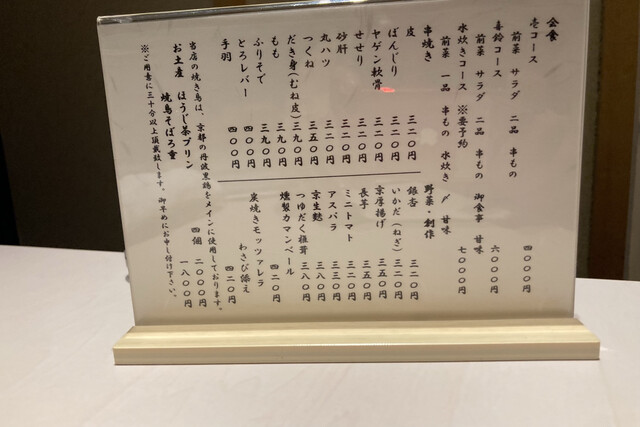 会食
壱コース
前菜 サラダ 二品 串もの 四〇〇〇円
喜鈴コース
前菜 サラダ 二品 串もの 御食事 甘味 六〇〇〇円
水炊きコース ※要予約
前菜 一品 串もの 水炊き 〆 甘味 七〇〇〇円
串焼き
皮 三二〇円
ぼんじり 三二〇円
ヤゲン軟骨 三二〇円
せせり 三二〇円
砂肝 三二〇円
丸ハツ 三二〇円
つくね 三五〇円
だき身(むね皮) 三九〇円
もも 三九〇円
ふりそで 三九〇円
とろレバー 四〇〇円
手羽 四〇〇円
野菜・創作
銀杏 三二〇円
いかだ(ねぎ) 三二〇円
京厚揚げ 三五〇円
長芋 三五〇円
ミニトマト 三二〇円
アスパラ 三三〇円
京生麩 三八〇円
つゆだく椎茸 三八〇円
燻製カマンベール 四二〇円
炭焼きモッツァレラ
わさび添え 四二〇円
当店の焼き鳥は、京都の丹波黒鶏をメインに使用しております。
お土産 ほうじ茶プリン 四個 二〇〇〇円
焼鳥そぼろ重 一八〇〇円
※ご用意に三十分以上頂戴致します。御早めにお申し付け下さい。